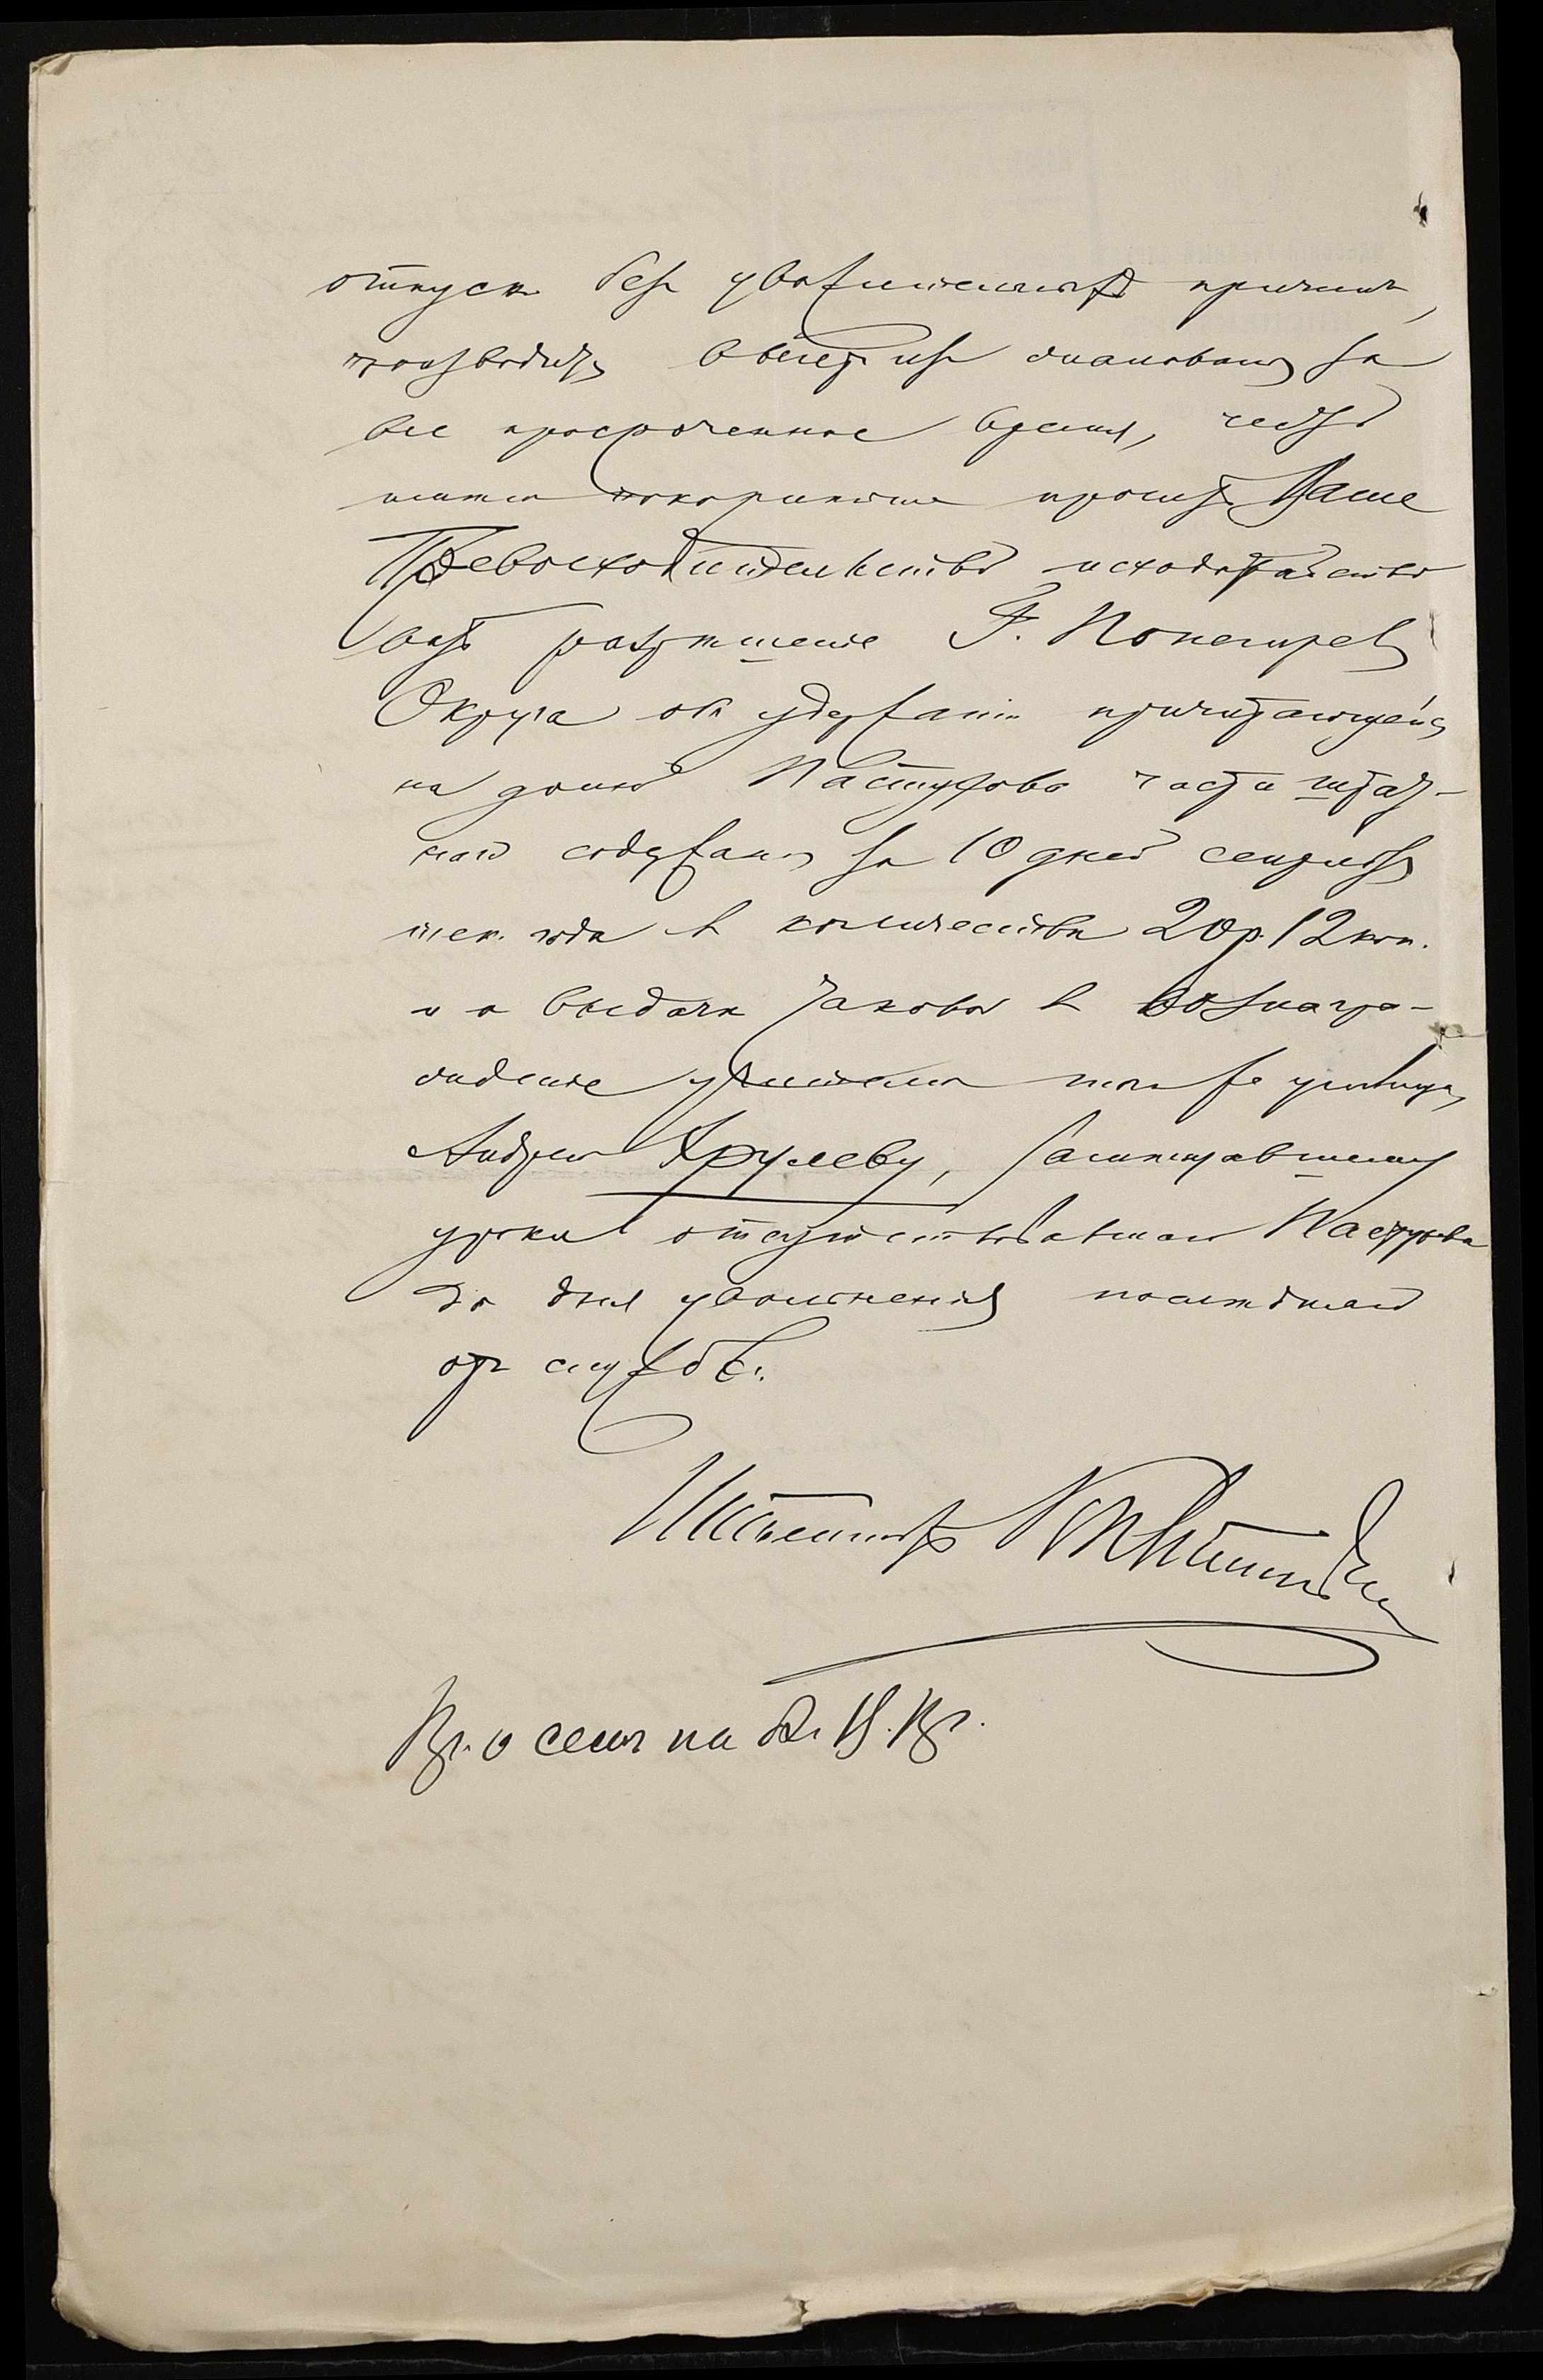 отпуск безъ уважительной причины,
производить вычетъ изъ жалованья за
все просроченное время, честь
имею покорнейше просить Ваше
Превосходительство исходатайство
вать разрешение Г. Попечителя
Округа объ удержании причитающейся
на долю Пастухова части штат-
наго содержания за 10 дней сентября
тек. года въ количестве 20 р. 12 коп.
и о выдаче таковой въ вознагра-
ждение учителю того же училища,
Андрею Хрулеву, занимавшему
уроки отсутствовавшаго Пастухова
до дня увольнения последняго
отъ службы.
Инспекторъ